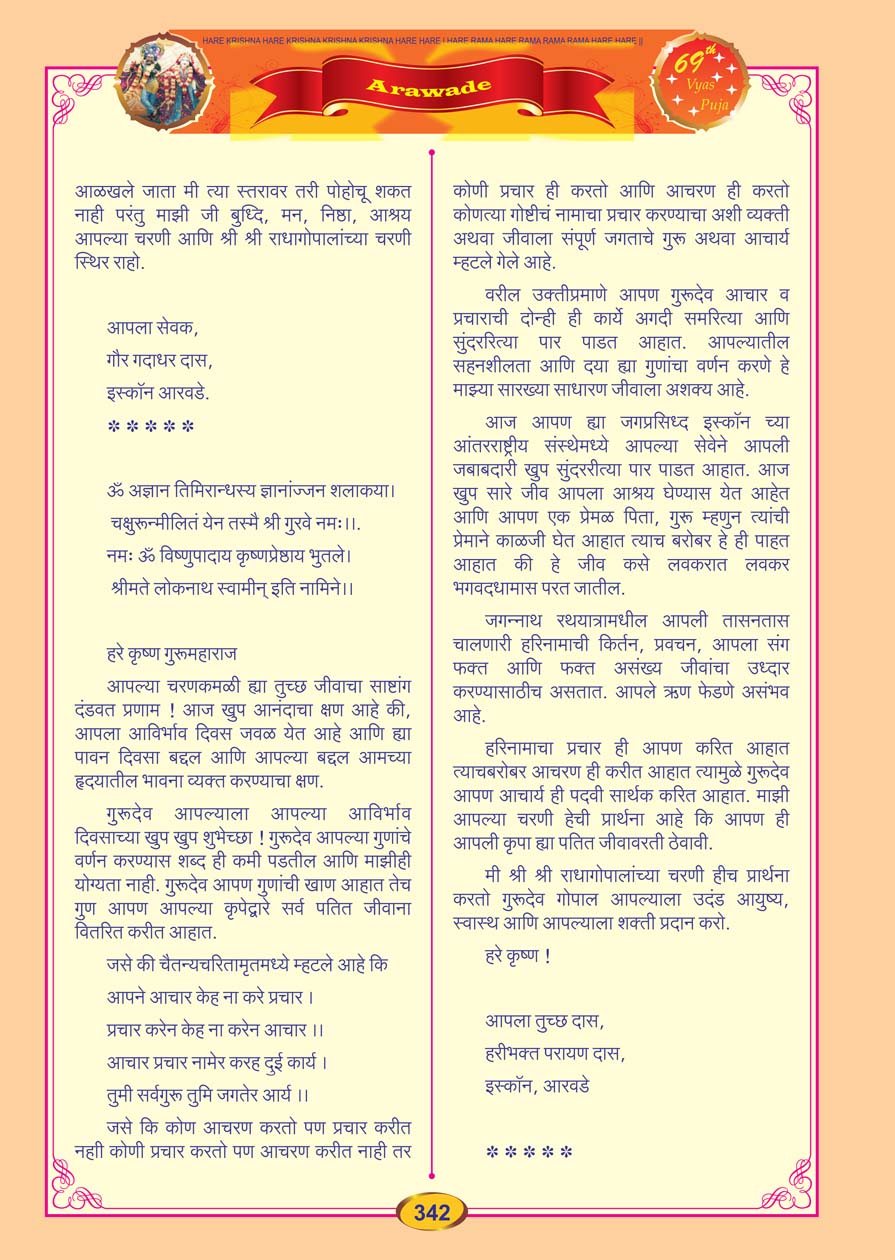 HARE KRISHNA HARE KRISHNA KRISHNA KRISHNA HARE HARE | HARE RAMA HARE RAMA RAMA RAMA HARE HARE ||
Arawade
69th
Vyas
Puja
आळखले जाता मी त्या स्तरावर तरी पोहोचू शकत
नाही परंतु माझी जी बुध्दि, मन, निष्ठा, आश्रय
आपल्या चरणी आणि श्री श्री राधागोपालांच्या चरणी
स्थिर राहो.
आपला सेवक,
गौर गदाधर दास,
इस्कॉन आरवडे.
* * * * *
ॐ अज्ञान तिमिरान्धस्य ज्ञानांज्जन शलाकया।
चक्षुरून्मीलितं येन तस्मै श्री गुरवे नमः।।.
नमः ॐ विष्णुपादाय कृष्णप्रेष्ठाय भुतले।
श्रीमते लोकनाथ स्वामीन् इति नामिने।।
हरे कृष्ण गुरूमहाराज
आपल्या चरणकमळी ह्या तुच्छ जीवाचा साष्टांग
दंडवत प्रणाम ! आज खुप आनंदाचा क्षण आहे की,
आपला आविर्भाव दिवस जवळ येत आहे आणि ह्या
पावन दिवसा बद्दल आणि आपल्या बद्दल आमच्या
हृदयातील भावना व्यक्त करण्याचा क्षण.
गुरूदेव आपल्याला आपल्या आविर्भाव
दिवसाच्या खुप खुप शुभेच्छा ! गुरूदेव आपल्या गुणांचे
वर्णन करण्यास शब्द ही कमी पडतील आणि माझीही
योग्यता नाही. गुरूदेव आपण गुणांची खाण आहात तेच
गुण आपण आपल्या कृपेद्वारे सर्व पतित जीवाना
वितरित करीत आहात.
जसे की चैतन्यचरितामृतमध्ये म्हटले आहे कि
आपने आचार केह ना करे प्रचार ।
प्रचार करेन केह ना करेन आचार ।।
आचार प्रचार नामेर करह दुई कार्य ।
तुमी सर्वगुरू तुमि जगतेर आर्य ।।
जसे कि कोण आचरण करतो पण प्रचार करीत
नहाी कोणी प्रचार करतो पण आचरण करीत नाही तर
कोणी प्रचार ही करतो आणि आचरण ही करतो
कोणत्या गोष्टीचं नामाचा प्रचार करण्याचा अशी व्यक्ती
अथवा जीवाला संपूर्ण जगताचे गुरू अथवा आचार्य
म्हटले गेले आहे.
वरील उक्तीप्रमाणे आपण गुरूदेव आचार व
प्रचाराची दोन्ही ही कार्ये अगदी समरित्या आणि
सुंदररित्या पार पाडत आहात. आपल्यातील
सहनशीलता आणि दया ह्या गुणांचा वर्णन करणे हे
माझ्या सारख्या साधारण जीवाला अशक्य आहे.
आज आपण ह्या जगप्रसिध्द इस्कॉन च्या
आंतरराष्ट्रीय संस्थेमध्ये आपल्या सेवेने आपली
जबाबदारी खुप सुंदररीत्या पार पाडत आहात. आज
खुप सारे जीव आपला आश्रय घेण्यास येत आहेत
आणि आपण एक प्रेमळ पिता, गुरू म्हणुन त्यांची
प्रेमाने काळजी घेत आहात त्याच बरोबर हे ही पाहत
आहात की हे जीव कसे लवकरात लवकर
भगवदधामास परत जातील.
जगन्नाथ रथयात्रामधील आपली तासनतास
चालणारी हरिनामाची किर्तन, प्रवचन, आपला संग
फक्त आणि फक्त असंख्य जीवांचा उध्दार
करण्यासाठीच असतात. आपले ऋण फेडणे असंभव
आहे.
हरिनामाचा प्रचार ही आपण करित आहात
त्याचबरोबर आचरण ही करीत आहात त्यामुळे गुरूदेव
आपण आचार्य ही पदवी सार्थक करित आहात. माझी
आपल्या चरणी हेची प्रार्थना आहे कि आपण ही
आपली कृपा ह्या पतित जीवावरती ठेवावी.
मी श्री श्री राधागोपालांच्या चरणी हीच प्रार्थना
करतो गुरूदेव गोपाल आपल्याला उदंड आयुष्य,
स्वास्थ आणि आपल्याला शक्ती प्रदान करो.
हरे कृष्ण !
आपला तुच्छ दास,
हरीभक्त परायण दास,
इस्कॉन, आरवडे
* * * * *
342